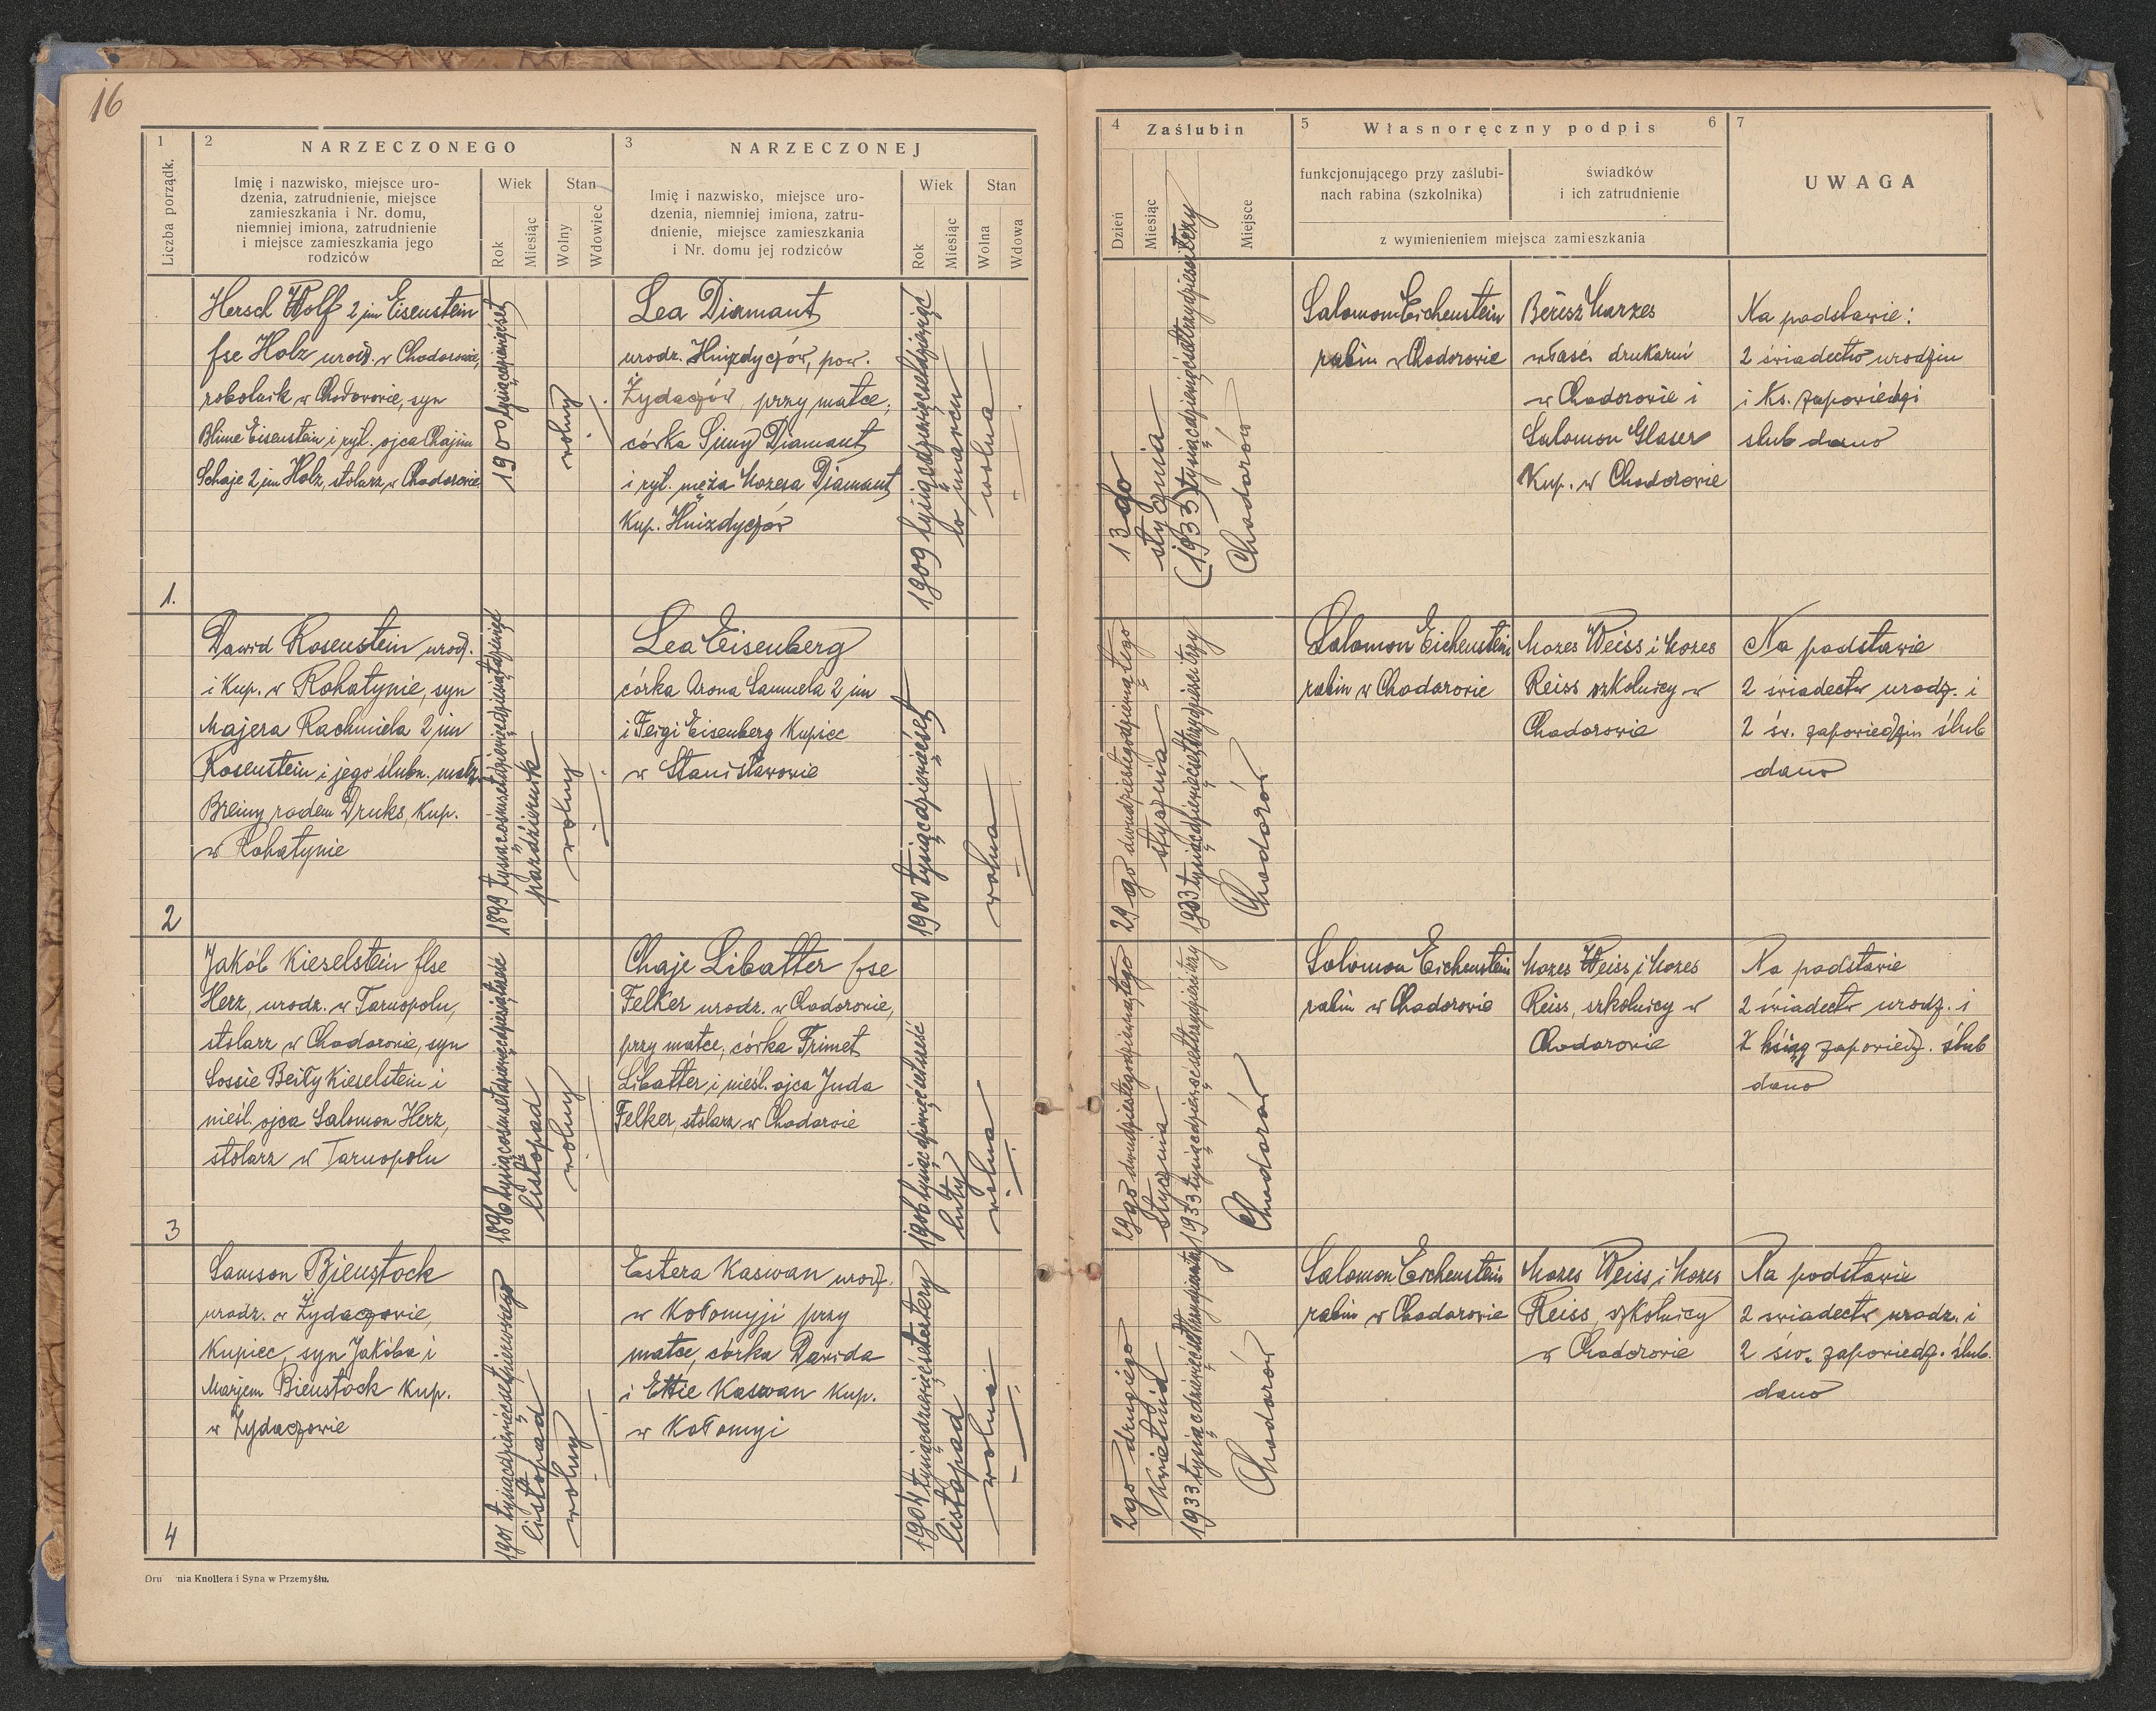 16
1
2
NARZECZONEGO
3
NARZECZONEJ
Liczba porządk.
Imię i nazwisko, miejsce uro-
dzenia, zatrudnienie, miejsce
zamieszkania i Nr. domu,
niemniej imiona, zatrudnienie
i miejsce zamieszkania jego
rodziców
Wiek
Rok
Miesiąc
Stan
Wolny
Wdowiec
Imię i nazwisko, miejsce uro-
dzenia, niemniej imiona, zatru-
dnienie, miejsce zamieszkania
i Nr. domu jej rodziców
Wiek
Rok
Miesiąc
Stan
Wolna
Wdowa
4
Zaślubin
Dzień
Miesiąc
Miejsce
5
Własnoręczny podpis
6
funkcjonującego przy zaślubi-
nach rabina (szkolnika)
świadków
i ich zatrudnienie
z wymienieniem miejsca zamieszkania
7
UWAGA
1.
Hersch Wolf 2 im Eisenstein
fse Holz urodz. w Chodorowie,
robotnik w Chodorowie, syn
Blime Eisenstein i ryt. ojca Chajim
Schaje 2 im Holz, stolarz w Chodorowie
1900 tysiącdziewięćset
wolny
Lea Diamant
urodz. Hnizdyczów, pow.
Żydaczów, przy matce,
córka Simy Diamant
i ryt. męża Mozesa Diamant
Kup. Hnizdyczów
1909 tysiącdziewięćsetdziewięć
to marcu
wolna
13 go
stycznia
(1933) tysiącdziewięćsettrzydzieścitrzy
Chodorów
Salomon Eichenstein
rabin w Chodorowie
Berisz Marzes
właść. drukarni
w Chodorowie i
Salomon Glaser
Kup. w Chodorowie
Na podstawie:
2 świadectw urodzin
i Ks. zapowiedzi
slub dano
2
Dawid Rosenstein urodz.
i Kup. w Rohatynie, syn
Majera Rachmiela 2 im
Rosenstein i jego ślubn. małż.
Breiny rodem Druks, Kup.
w Rohatynie
1899 tysiącosiemsetdziewięćdziesiątdziewięć
październik
wolny
Lea Eisenberg
córka Arona Samuela 2 im
i Feigi Eisenberg Kupiec
w Stanisławowie
1900 tysiącdziewięćset
wolna
29 go dwudziestegodziewiątego
stycznia
1933 tysiącdziewięćsettrzydzieścitrzy
Chodorów
Salomon Eichenstein
rabin w Chodorowie
Mozes Weiss i Mozes
Reiss szkolnicy w
Chodorowie
Na podstawie
2 świadectw urodz. i
2 św. zapowiedzin ślub
dano
3
Jakób Kieselstein flse
Herz, urodz. w Tarnopolu,
stolarz w Chodorowie, syn
Sossie Beiły Kieselstein i
nieśl. ojca Salomon Herz,
stolarz w Tarnopolu
1896 tysiącośmsetdziewięćdziesiątsześć
listopad
wolny
Chaje Libatter fse
Felker urodz. w Chodorowie,
przy matce, córka Frimet
Libatter i nieśl. ojca Juda
Felker, stolarz w Chodorowie
1906 tysiącdziewięćsetsześć
luty
wolna
29 go dwudziestegodziewiątego
stycznia
1933 tysiącdziewięćsettrzydzieścitrzy
Chodorów
Salomon Eichenstein
rabin w Chodorowie
Mozes Weiss i Mozes
Reiss, szkolnicy w
Chodorowie
Na podstawie
2 świadectw urodz. i
2 ksiąg zapowiedz. ślub
dano
4
Samson Bienstock
urodz. w Żydaczowie,
Kupiec, syn Jakóba i
Marjem Bienstock Kup.
w Żydaczowie
1901 tysiącdziewięćsetpierwszego
listopad
wolny
Estera Kaswan urodz.
w Kołomyji przy
matce, córka Dawida
i Ettie Kaswan Kup.
w Kołomyi
1904 tysiącdziewięćsetcztery
listopad
wolna
2go drugiego
kwietnia
1933 tysiącdziewięćsettrzydzieścitrzy
Chodorów
Salomon Eichenstein
rabin w Chodorowie
Mozes Weiss i Mozes
Reiss, szkolnicy
w Chodorowie
Na podstawie
2 swiadectw urodz. i
2 św. zapowiedz. ślub.
dano
nia Knollera i Syna w Przemyślu.